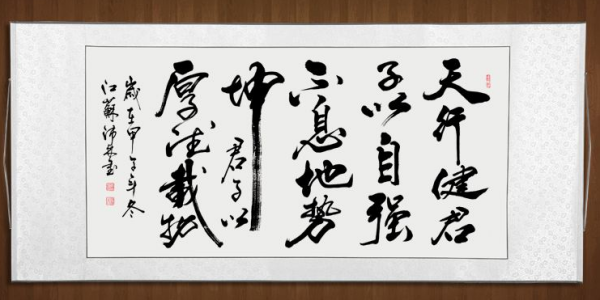 天行健君
子以自强
不息地势
坤君子以
厚德載物
歲在甲午年冬
江蘇沛林书